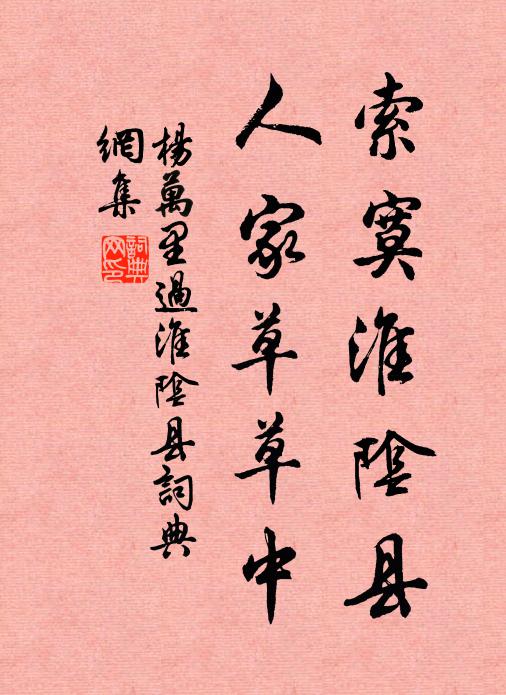 索寞淮陰县
人家草草中
楊萬里過淮陰县詞典
網集
詞典网印